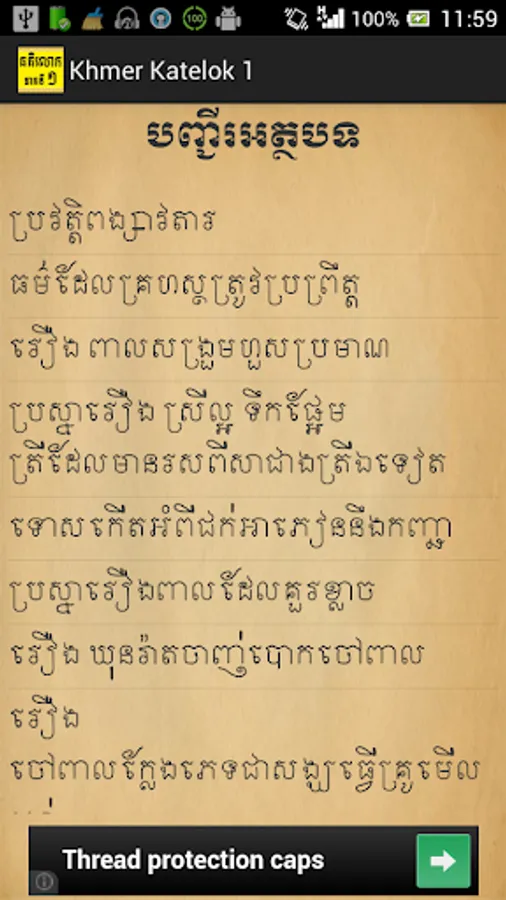 100% 11:59
គតិលោក
ភាគទី ១
Khmer Katelok 1
បញ្ជីរអត្ថបទ
ប្រវត្តិពង្សាវតារ
ធម៌ដែលគ្រហស្ថត្រូវប្រព្រឹត្ត
រឿង ពាលសង្រួមហួសប្រមាណ
ប្រស្នារឿង ស្រីល្អ ទឹកផ្អែម
ត្រីដែលមានរសពីសាជាងត្រីឯទៀត
ទោសកើតអំពីជក់អាភៀននឹងកញ្ឆា
ប្រស្នារឿងពាលដែលគួរខ្លាច
រឿង ឃុនរ៉ាតចាញ់បោកចៅពាល
រឿង
ចៅពាលក្លែងភេទជាសង្ឃ ធ្វើគ្រូមើល
Thread protection caps